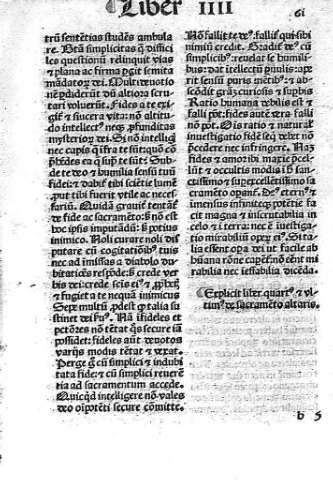 Liber IIII
61
trũ sentẽtias studẽs ambula
re. Btã simplicitas q̃ difficí
les questionũ relinquit vias
⁊ plana ac firma pgit semita
mãdatoɽ dei. Multi deuotio
nẽ pdiderũt dũ altiora scru
tari voluerũt. Fides a te exi
git̃ ⁊ sincera vita: nõ altitu
do intellect⁹: neq; pfunditas
mysterioɽ dei. Si nõ intelligis
nec capis q̃ ifra te sũt: quõ cõ
phẽdes ea q̃ sup te sũt: Sub
de te deo ⁊ humilia sensũ tuũ
fidei: ⁊ dabit̃ tibi sciẽtie lumẽ
put tibi fuerit vtile ac neces
sariũ. Quidã grauit̃ tentãt̃
de fide ac sacramẽto: ẞ nõ est
hoc ipsis imputãdũ: ẞ potius
inimico. Noli curare noli dis
putare cũ cogitatiõib⁹ tuis
nec ad imissas a diabolo du
bitatiões respõde: ẞ crede ver
bis dei: crede scis ei⁹ ⁊ pphis
⁊ fugiet a te nequã inimicus
Sepe multũ pdest q̃ talia su
stinet dei fu⁹. Nã infideles et
pctõres nõ tẽtat q̃s secure iã
possidet: fideles aũt deuotos
varijs modis tẽtat ⁊ vexat.
Perge g̃ cũ simplici ⁊ indubi
tata fide: ⁊ cũ simplici reueren
tia ad sacramentum accede.
Quicq̃d intelligere nõ vales
deo oipotẽti secure cõmitte.
Nõ fallit te de⁹: fallit̃ qui sibi
nimiũ credit. Gradit̃ de⁹ cũ
simplicib⁹: reuelat se humili
bus: dat itellectũ puulis: ape
rit sensũ puris mẽtib⁹: ⁊ abs
cõdit grãz curiosis ⁊ supbis
Ratio humana debilis est ⁊
falli põt: fides autẽ vera falli
nõ põt. Ois ratio ⁊ naturalis
inuestigatio fidẽ seq̃ debet nõ
pcedere nec infringere. Naz
fides ⁊ amor ibi maxie pcel
lũt ⁊ occultis modis i h̃ san
ctissimo ⁊ supexcellẽtissimo sa
cramẽto opant̃. De⁹ etern⁹ ⁊
imensus infiniteq; potẽtie fa
cit magna ⁊ inscrutabilia in
celo ⁊ i terra: nec ẽ inuestiga
tio mirabiliũ opeɽ ei⁹. Si ta
lia essent opa dei vt facile ab
hũana rõne capẽt̃ nõ eẽnt mi
rabilia nec ieffabilia dicẽda.
Explicit liber quart⁹ ⁊ vl
tim⁹ de sacramẽto altaris.
b 5